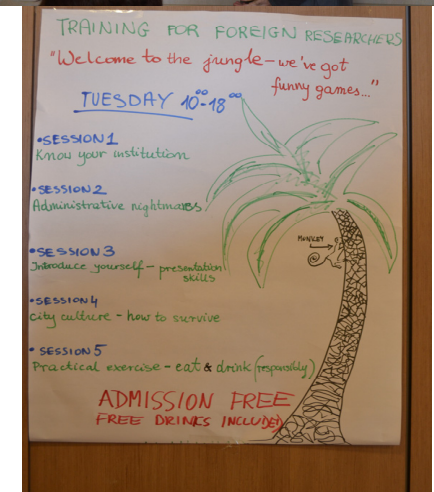 TRAINING FOR FOREIGN RESEARCHERS
"Welcome to the jungle - we've got
funny games..."
TUESDAY 10⁰⁰-18⁰⁰
•SESSION 1
Know your institution
•SESSION 2
Administrative nightmares
•SESSION 3
Introduce yourself - presentation
skills
•SESSION 4
City culture - how to survive
•SESSION 5
Practical exercise - eat & drink (responsibly)
MONKEY
ADMISSION FREE
FREE DRINKS INCLUDED